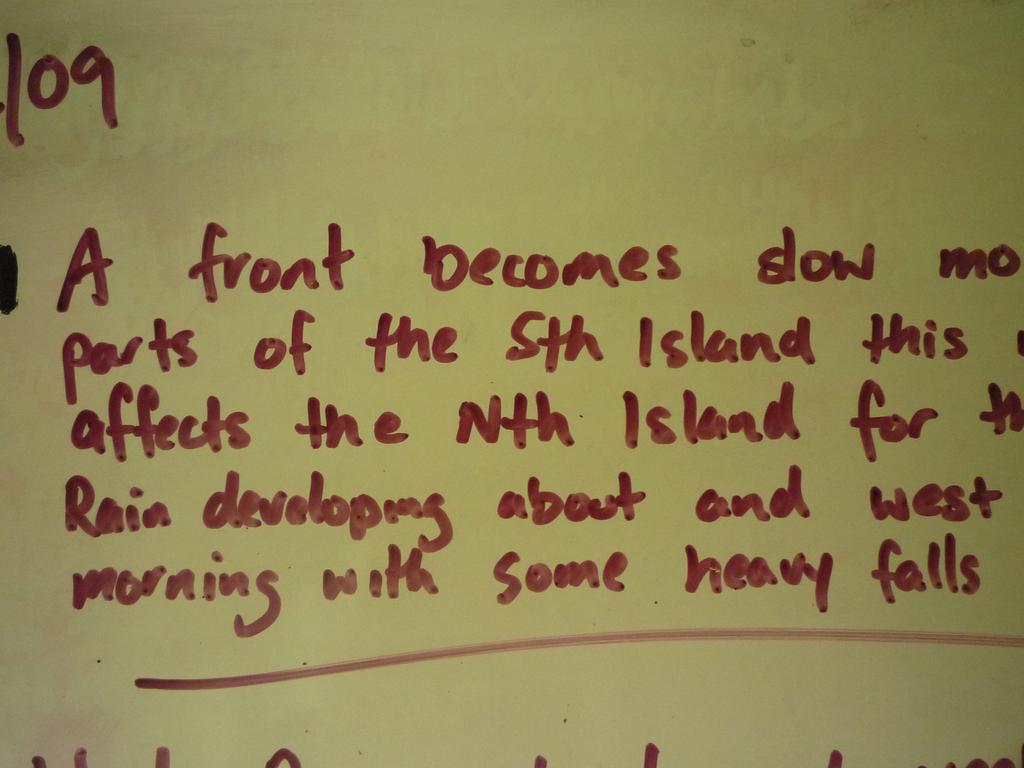 /09
A front becomes slow mo
parts of the Sth Island this
affects the Nth Island for th
Rain developing about and west
morning with some heavy falls